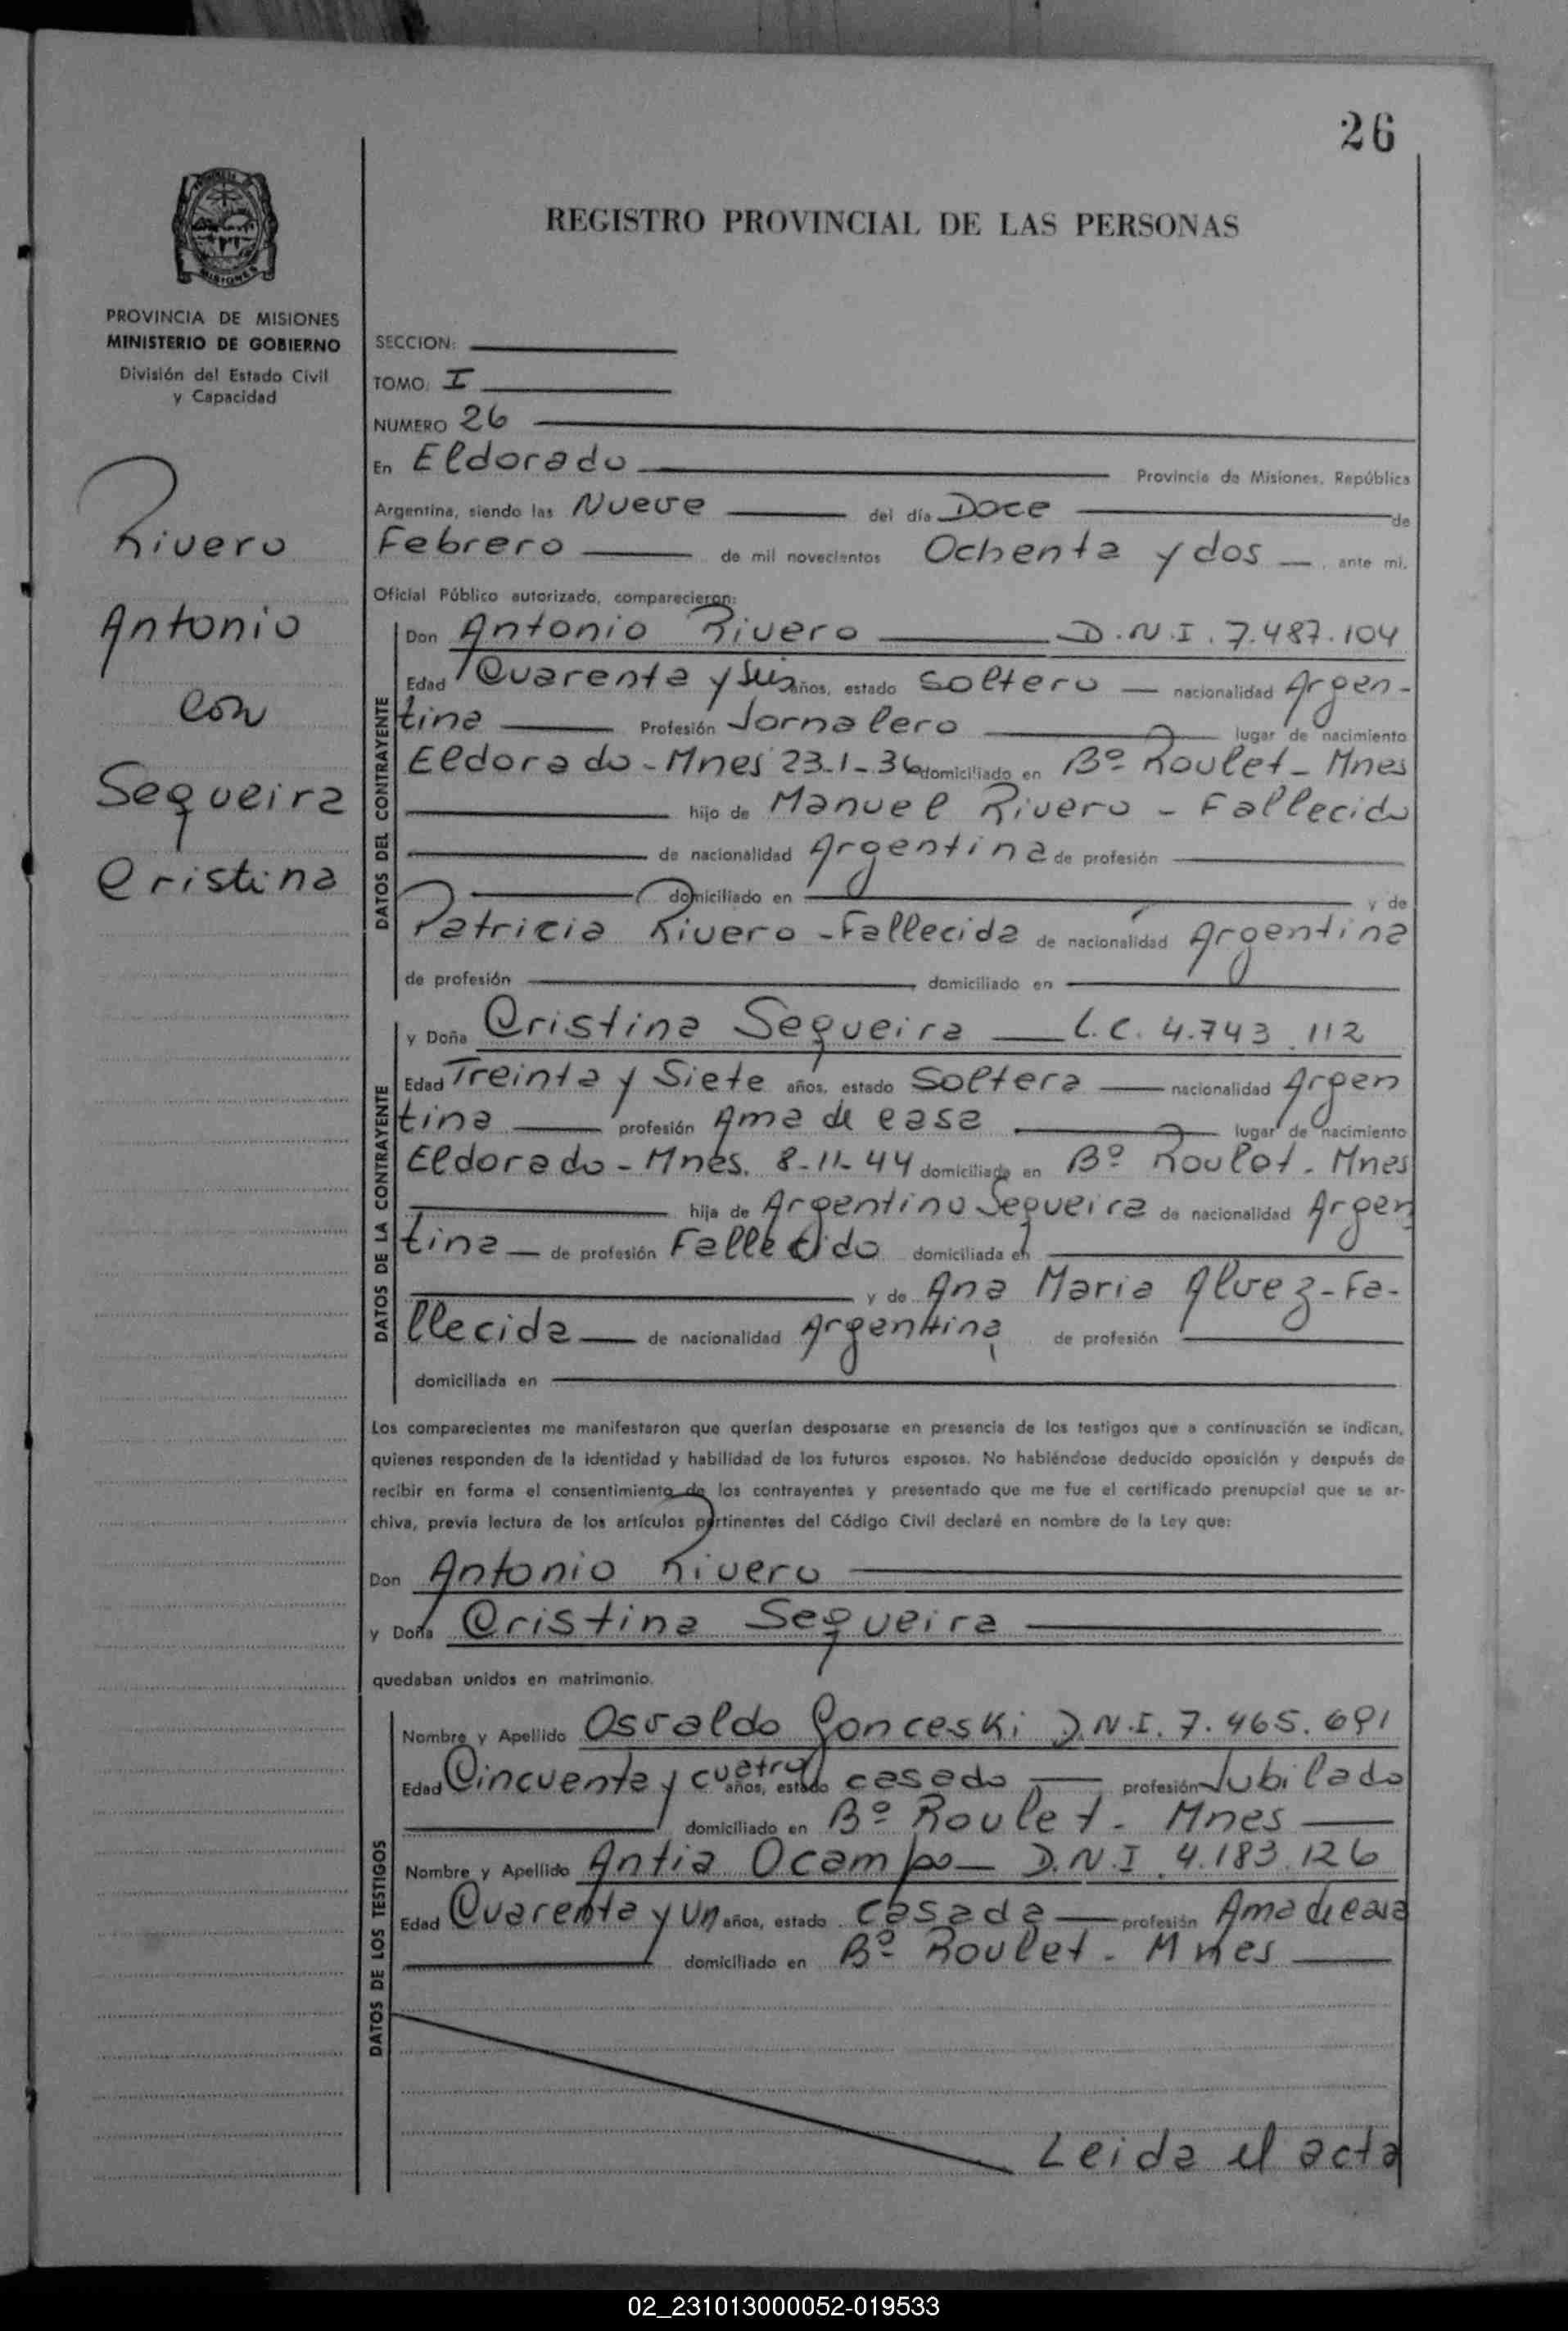 26
REGISTRO PROVINCIAL DE LAS PERSONAS
MISIONES
PROVINCIA DE MISIONES
MINISTERIO DE GOBIERNO
División del Estado Civil
y Capacidad
Rivero
Antonio
con
Sequeira
Cristina
SECCION:
TOMO: I
NUMERO 26
En Eldorado Provincia de Misiones, República
Argentina, siendo las Nueve del día Doce de
Febrero de mil novecientos Ochenta y dos ante mi,
Oficial Público autorizado, comparecieron:
DATOS DEL CONTRAYENTE
Don Antonio Rivero D.N.I. 7.487.104
Edad Quarenta y Seis años, estado soltero nacionalidad Argen-
tina Profesión Jornalero lugar de nacimiento
Eldorado - Mnes 23-1-36 domiciliado en Bº Roulet - Mnes
hijo de Manuel Rivero - Fallecido
de nacionalidad Argentina de profesión
domiciliado en y de
Patricia Rivero - Fallecida de nacionalidad Argentina
de profesión domiciliado en
DATOS DE LA CONTRAYENTE
y Doña Cristina Sequeira L.C. 4.743.112
Edad Treinta y Siete años, estado Soltera nacionalidad Argen
tina profesión Ama de casa lugar de nacimiento
Eldorado - Mnes. 8-11-44 domiciliada en Bº Roulet - Mnes
hija de Argentino Sequeira de nacionalidad Argen
tina de profesión Fallecido domiciliada en
y de Ana Maria Alvez - Fa-
llecida de nacionalidad Argentina de profesión
domiciliada en
Los comparecientes me manifestaron que querían desposarse en presencia de los testigos que a continuación se indican,
quienes responden de la identidad y habilidad de los futuros esposos. No habiéndose deducido oposición y después de
recibir en forma el consentimiento de los contrayentes y presentado que me fue el certificado prenupcial que se ar-
chiva, previa lectura de los artículos pertinentes del Código Civil declaré en nombre de la Ley que:
Don Antonio Rivero
y Doña Cristina Sequeira
quedaban unidos en matrimonio.
DATOS DE LOS TESTIGOS
Nombre y Apellido Osvaldo Gonceski D.N.I. 7.465.691
Edad Cincuenta y cuatro años, estado casado profesión Jubilado
domiciliado en Bº Roulet - Mnes
Nombre y Apellido Antia Ocampo D.N.I. 4.183.126
Edad Quarenta y Un años, estado casada profesión Ama de casa
domiciliado en Bº Roulet - Mnes
Leida el acta
02_231013000052-019533